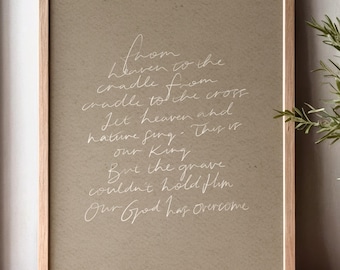 from
heaven to the
cradle from
cradle to the cross
Let heaven and
nature sing. This is
our King
But the grave
couldn't hold Him
Our God has overcome